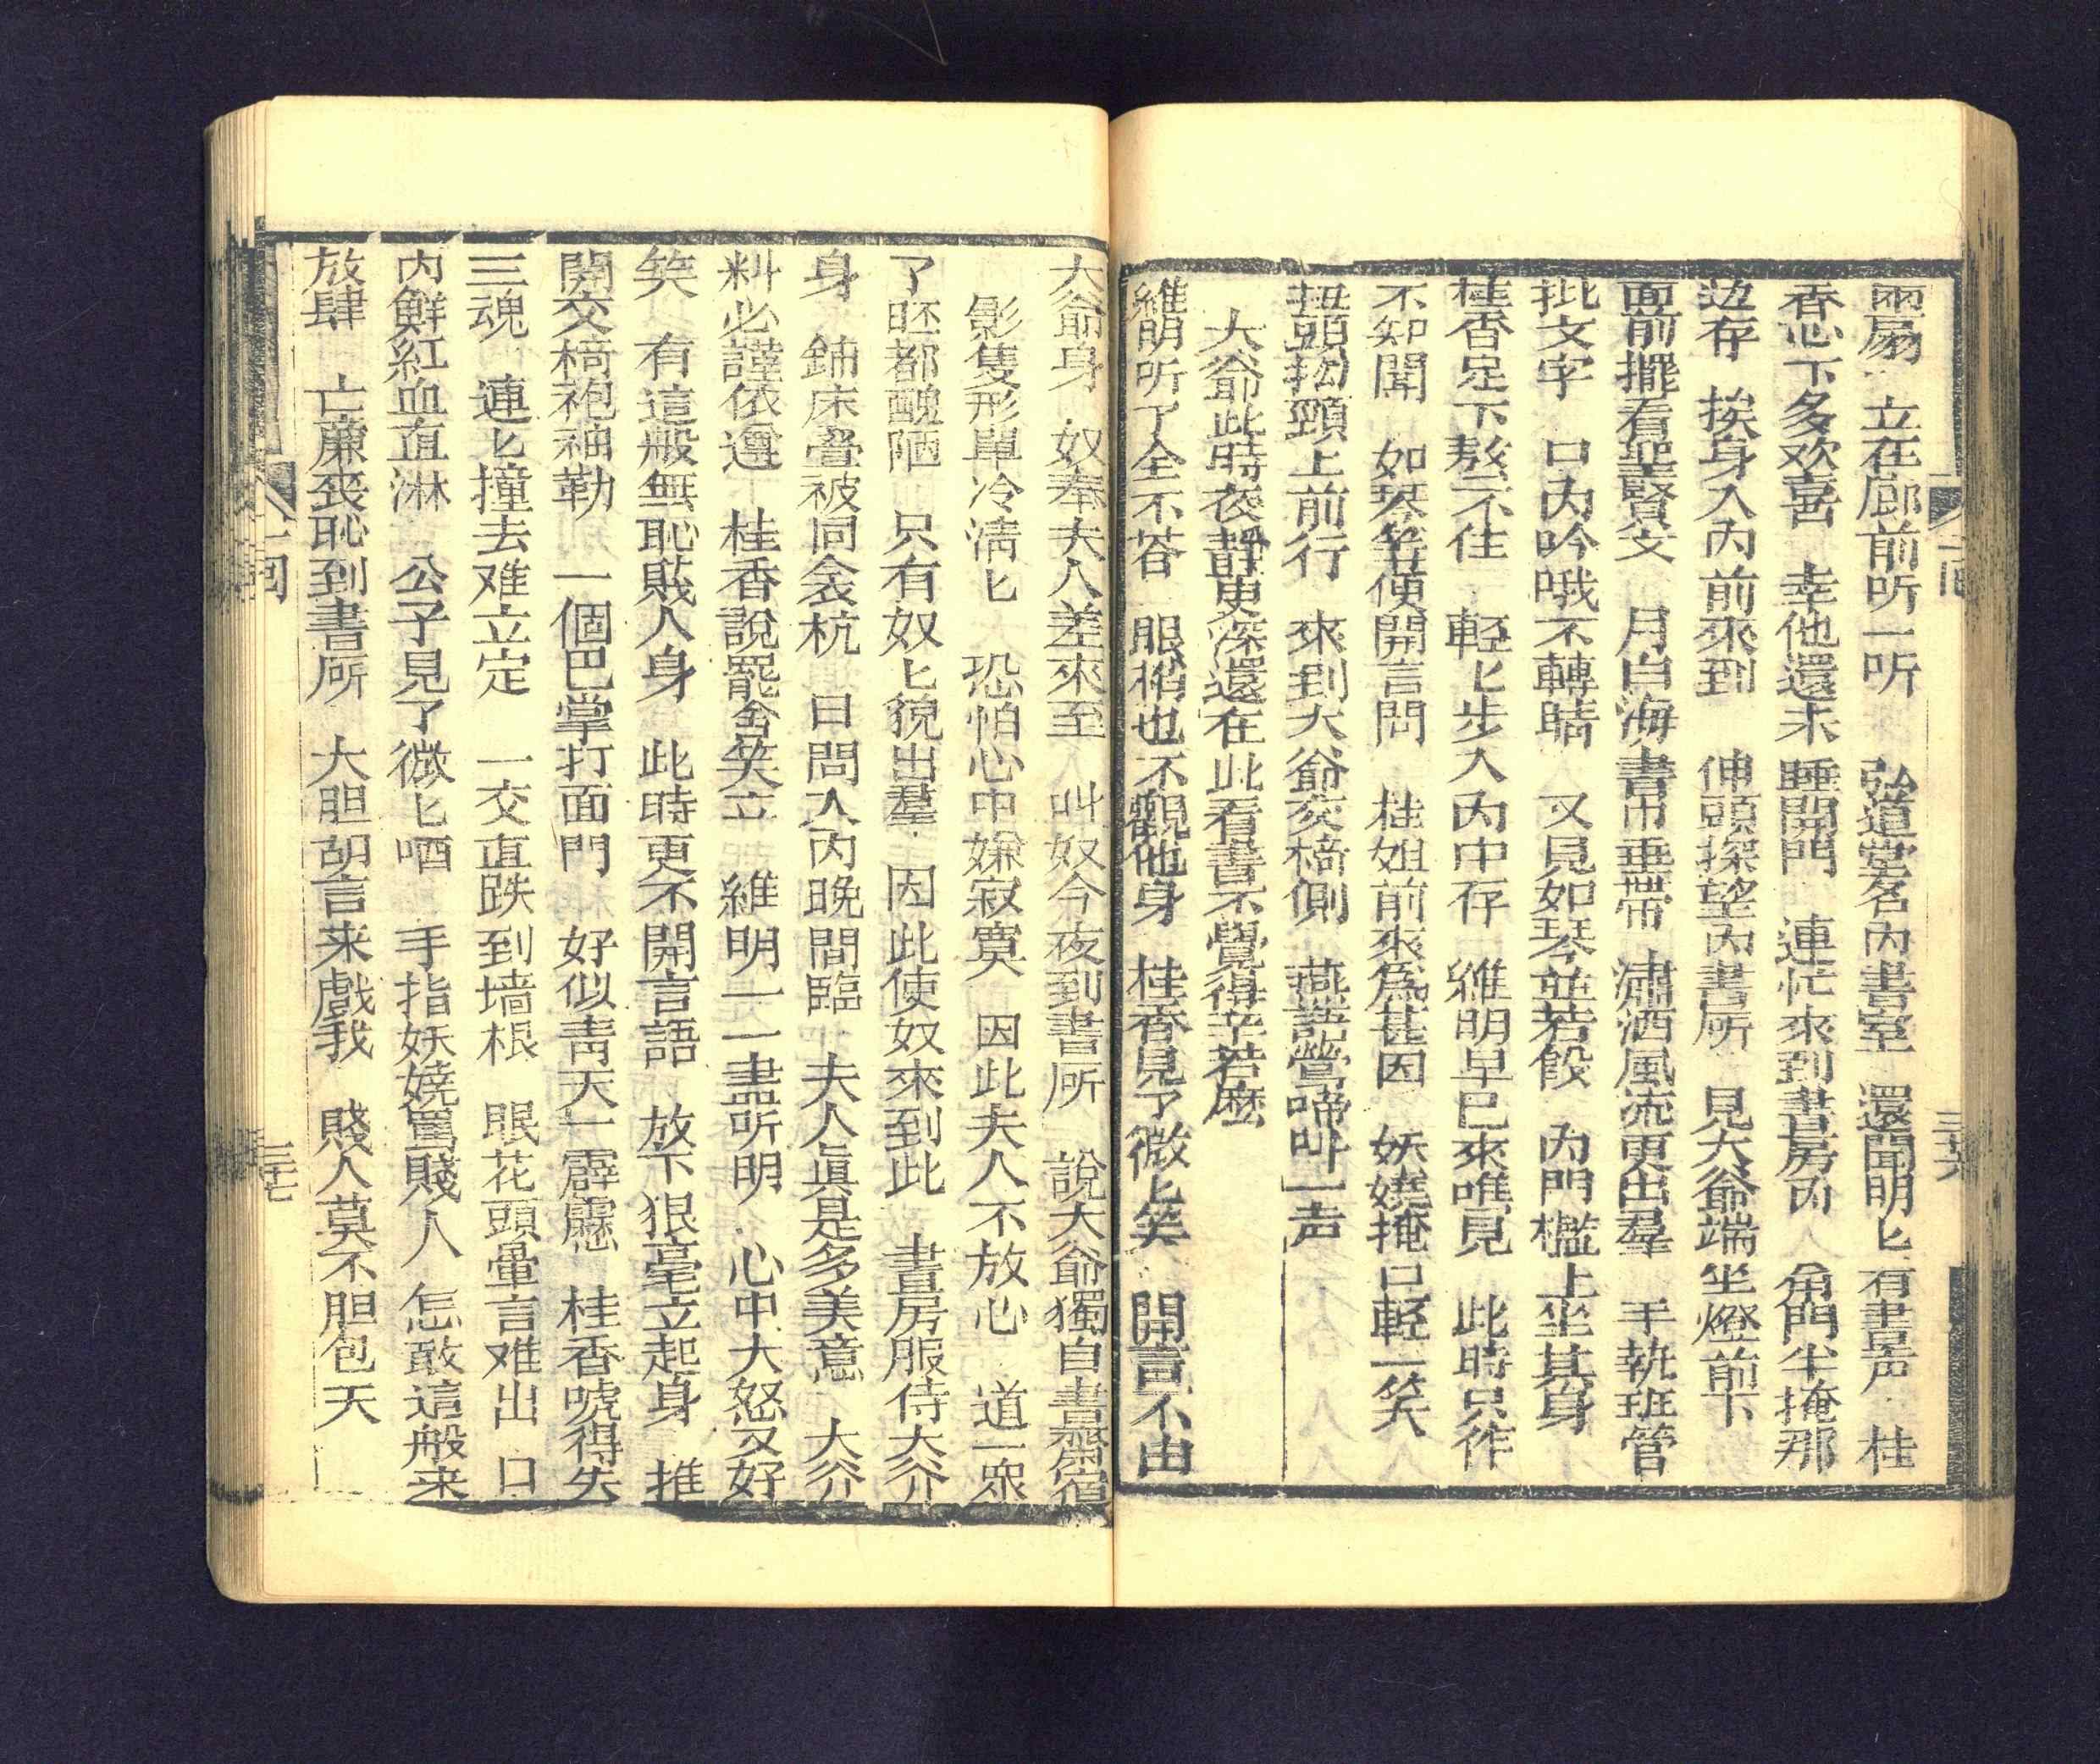 兩扇　立在廊前听一听　弘道堂名內書室　還聞明匕有書声　桂
香心下多欢喜　幸他還未睡開門　連忙來到書房內　角門半掩那
边存　挨身入內前來到　伸頭探望內書所　見大爺端坐燈前下
面前擺着聖賢文　月白海青巾垂帶　瀟洒風流更出羣　手執班管
批文字　口內吟哦不轉睛　又見如琴並若餀　內門檻上坐其身
桂香足下熬不住　輕匕步入內中存　維明早已來唯見　此時只作
不知聞　如琴等便開言問　桂姐前來為甚因　妖嬈掩口輕一笑
扭頭捻頸上前行　來到大爺交椅側　燕語鶯啼呌一声
大爺此時夜靜更深還在此看書不覺得辛若麽
維明听了全不荅　眼梢也不觀他身　桂香見了微匕笑　開言不由
三十六
大爺身　奴奉夫人差來至　呌奴今夜到書所　說大爺獨自書齋宿
影隻形單冷清匕　恐怕心中嫌寂寞　因此夫人不放心　道一眾
了㔻都醜陋　只有奴匕貌出羣　因此使奴來到此　書房服侍大爷
身　鋪床疊被同衾枕　日間入內晚間臨　夫人真是多美意　大爷
料必謹依遵　桂香說罷含笑立　維明一一盡听明　心中大怒又好
笑　有這般無恥賤人身　此時更不開言語　放下狠毫立起身　推
開交椅袍袖勒　一個巴掌打面門　好似青天一霹靂　桂香唬得失
三魂　連匕撞去难立定　一交直跌到墙根　眼花頭暈言难出　口
內鮮紅血直淋　公子見了微匕哂　手指妖嬈罵賤人　怎敢這般来
放肆　亡廉丧恥到書所　大胆胡言来戲我　賤人莫不胆包天
三十七